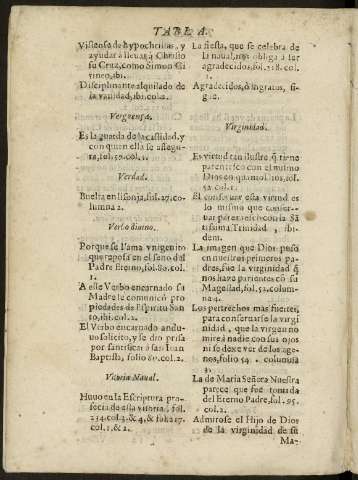 TABLA.
Vistense de hypochritas, y
ayudar à lleuar à Christo
su Cruz, como Simon Ci
rineo, ibi.
Disciplinante alquilado de
la vanidad, ibi. col. 2.
Verguença.
Es la guarda de la castidad, y
con quien ella se assegu-
ra, fol. 59. col. 1.
Verdad.
Buelta en lisonja, fol. 27. co-
lumna 2.
Verbo diuino.
Porque se llama vnigenito
que reposa en el seno del
Padre Eterno, fol. 80. col.
1.
A este Verbo encarnado su
Madre le comunicó pro
piedades de Espiritu San
to, ibi. col. 2.
El Verbo encarnado andu-
uo solicito, y se dio prisa
por santificar à san Iuan
Baptista, folio 80. col. 2.
Vitoria Naual.
Huuo en la Escriptura pro-
fecia de esta vitoria, fol.
234. col. 3. & 4. & fol. 217.
col. 1. & 2.
La fiesta, que se celebra de
la naual, nos obliga à ser
agradecidos, fol. 218. col.
1.
Agradecidos, ò ingratos, si-
gue.
Virginidad.
Es virtud tan ilustre q̃ tiene
parentesco con el mismo
Dios en quanto Dios, fol.
52. col. 1.
El conseruar esta virtud es
lo mismo que conser-
uar parentesco con la Sã
tissima Trinidad, ibi-
dem.
La imagen que Dios puso
en nuestros primeros pa-
dres, fue la virginidad q̃
nos haze parientes cõ su
Magestad, fol. 52. colum-
na 4.
Los pertrechos mas fuertes,
para conseruarse la virgi
nidad, que la virgen no
mire à nadie con sus ojos
ni se dexe ver de los age-
nos, folio 54. columna
3.
La de Maria Señora Nuestra
parece que fue tomada
del Eterno Padre, fol. 95.
col. 2.
Admirose el Hijo de Dios
de la virginidad de su
Ma-